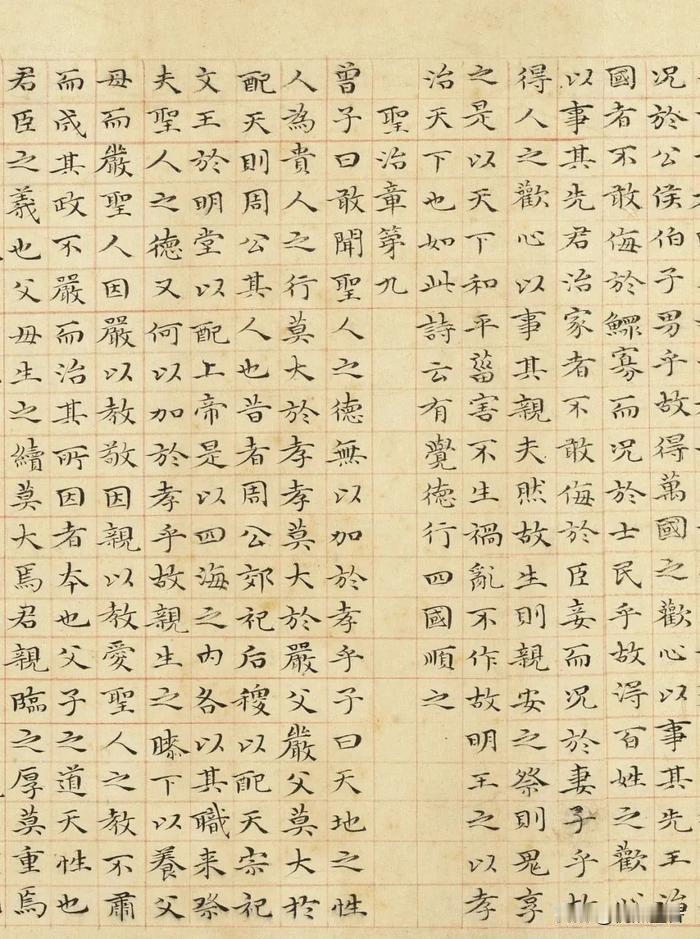 况於公侯伯子男乎故得萬國之歡心以事其先王治
國者不敢侮於鰥寡而况於士民乎故得百姓之歡心
以事其先君治家者不敢侮於臣妾而况於妻子乎故
得人之歡心以事其親夫然故生則親安之祭則鬼享
之是以天下和平菑害不生禍亂不作故明王之以孝
治天下也如此詩云有覺德行四國順之
聖治章苐九
曾子曰敢聞聖人之德無以加於孝乎子曰天地之性
人為貴人之行莫大於孝孝莫大於嚴父嚴父莫大於
配天則周公其人也昔者周公郊祀后稷以配天宗祀
文王於明堂以配上帝是以四海之内各以其職来祭
夫聖人之德又何以加於孝乎故親生之膝下以養父
母而嚴聖人因嚴以教敬因親以教愛聖人之教不肅
而成其政不嚴而治其所因者本也父子之道天性也
君臣之義也父母生之續莫大焉君親臨之厚莫重焉